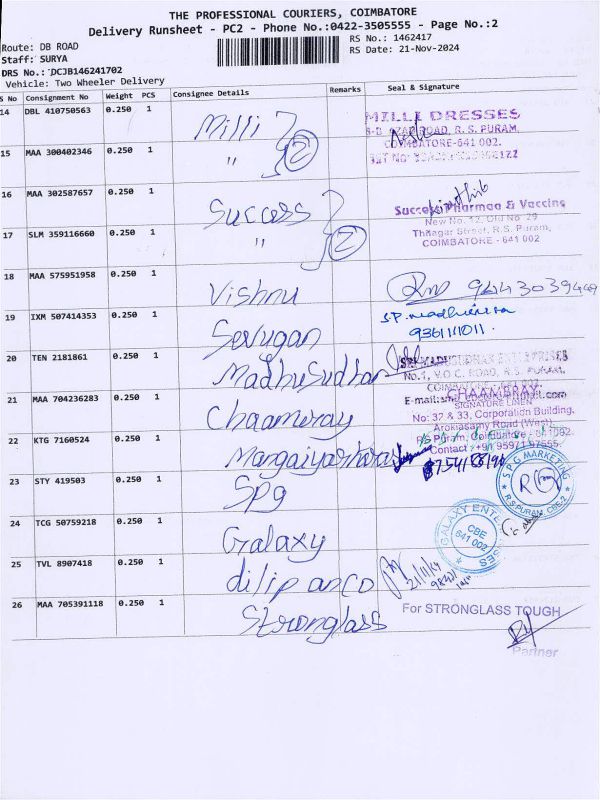 THE PROFESSIONAL COURIERS, COIMBATORE
Delivery Runsheet - PC2 - Phone No.:0422-3505555 - Page No.:2
Route: DB ROAD
RS No.: 1462417
Staff: SURYA
RS Date: 21-Nov-2024
DRS No.: DCJB146241702
Vehicle: Two Wheeler Delivery
S No Consignment No Weight PCS Consignee Details Remarks Seal & Signature
14 DBL 410750563 0.250 1 Milli
MILLI DRESSES
ROAD, R.S. PURAM,
COIMBATORE-641 002.
15 MAA 300402346 0.250 1 " 2
16 MAA 302587657 0.250 1 Success
Success Pharmaa & Vaccins
New No. 12, Old No. 29
Thilagar Street, R.S. Puram,
COIMBATORE - 641 002
17 SLM 359116660 0.250 1 " 2
18 MAA 575951958 0.250 1 Vishnu
19 IXM 507414353 0.250 1 Serugan
20 TEN 2181861 0.250 1 Madhusudhan
No.1, V.O.C. ROAD, R.S. PURAM,
21 MAA 704236283 0.250 1 Chaameray
CHAAMBRAY
SIGNATURE LINEN
No: 37 & 33, Corporation Building,
Arokiasamy Road (West),
R.S Puram, Coimbatore
22 KTG 7160524 0.250 1
23 STY 419503 0.250 1 Spg
SPG MARKETING
R.S. PURAM, CBE-2
24 TCG 50759218 0.250 1 Galaxy
GALAXY
CBE
641 002
25 TVL 8907418 0.250 1 dilip anco
26 MAA 705391118 0.250 1 Stronglass
For STRONGLASS TOUGH
Partner